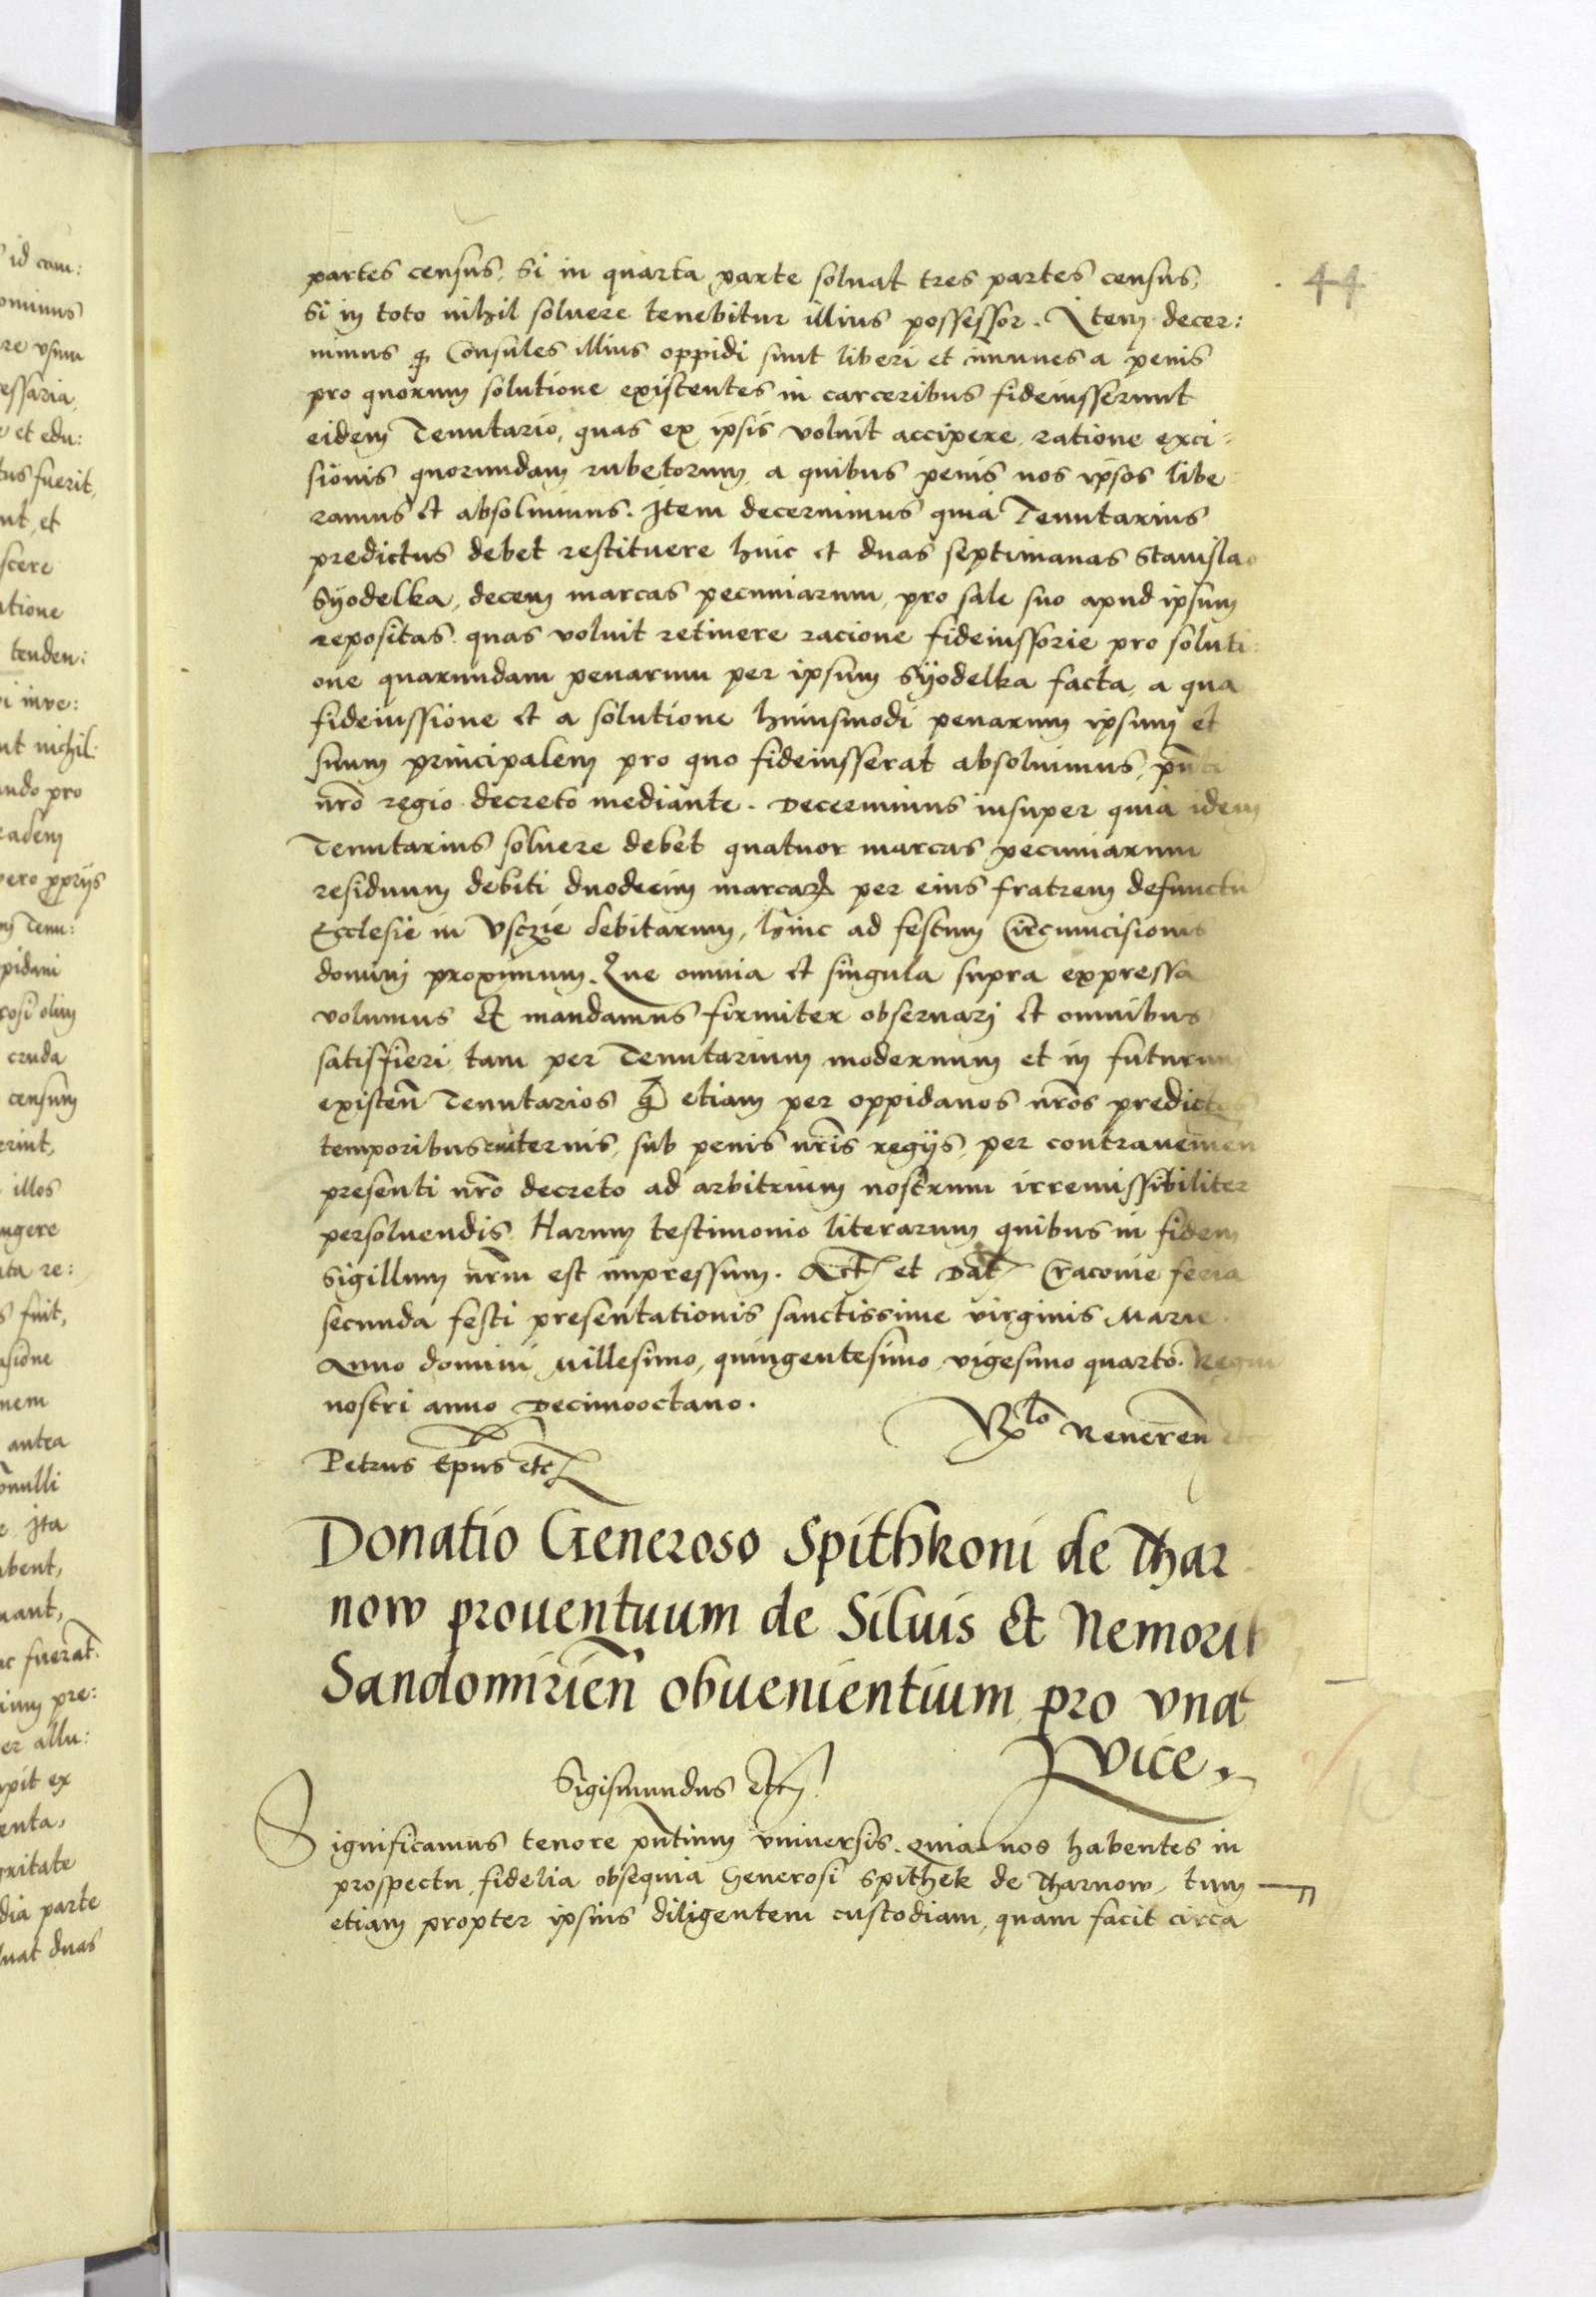 44
partes census, Si in quarta parte soluat tres partes census,
Si in toto nihil soluere tenebitur illius possessor. Item decer:
nimus ꝙ Consules illius oppidi sunt liberi et imunes a penis
pro quorum solutione existentes in carceribus fideiusserunt
eidem Tenutario, quas ex ipsis voluit accipere, ratione exci-
sionis quorundam rubetorum, a quibus penis nos ipsos libe
ramus et absoluimus. Item decernimus quia Tenutarius
predictus debet restituere hinc et duas septimanas Stanislao
Syodelka, decem marcas pecuniarum, pro sale suo apud ipsum
repositas, quas voluit retinere racione fideiussorie pro soluti:
one quarundam penarum per ipsum Syodelka facta, a qua
fideiussione et a solutione huiusmodi penarum ipsum et
suum principalem pro quo fideiusserat absoluimus, pn̄ti
nr̄o regio decreto mediante. Decernimus insuper quia idem
Tenutarius soluere debet quatuor marcas pecuniarum
residuum debiti duodecim marcaꝝ per eius fratrem defunctu
Ecclesie in Vsczie debitarum, hinc ad festum Circumcisionis
domini proximum. Que omnia et singula supra expressa
volumus et mandamus firmiter obseruari et omnibus
satisfieri tam per Tenutarium modernum et in futurum
existen̄ Tenutarios ꝙ etiam per oppidanos nr̄os predictos
temporibus euiternis, sub penis nr̄is regijs, per contrauenien
presenti nr̄o decreto ad arbitrium nostrum irremissibiliter
persoluendis. Harum testimonio literarum quibus in fidem
Sigillum nr̄m est impressum. Act et Dat Cracouie feria
secunda festi presentationis sanctissime virginis Marie.
Anno domini Millesimo, quingentesimo, vigesimo quarto. Regni
nostri anno Decimooctauo.
Rlo Reueren̄ etc
Petrus Ep̄us etc
Donatio Generoso Spithkoni de Thar
now prouentuum de Siluis et Nemorib
Sandomirien̄ obuenientium pro vna
vice.
Sigismundus etc
Significamus tenore pn̄tium vniuersis. Quia nos habentes in
prospectu fidelia obsequia Generosi Spithek de Tharnow, tum
etiam propter ipsius diligentem custodiam, quam facit circa